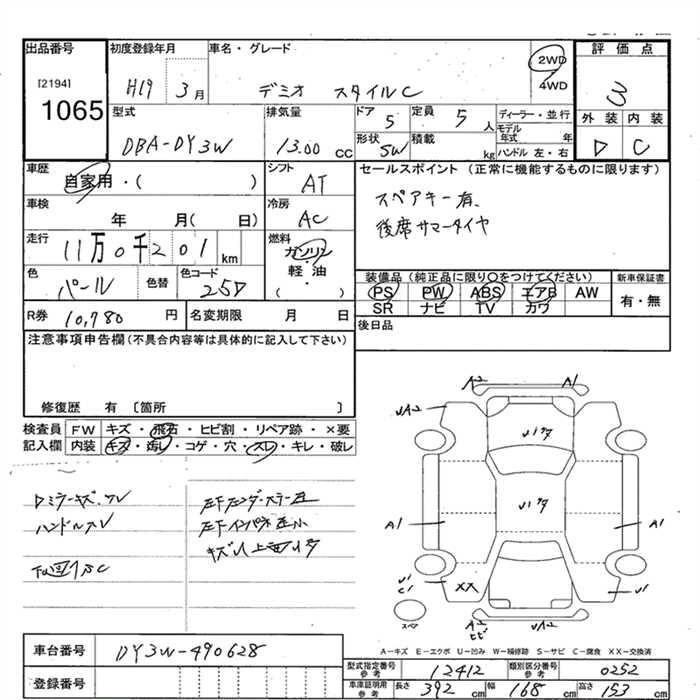 出品番号
[2194]
1065
初度登録年月
H19 3月
車名・グレード
デミオ スタイルC
2WD
・
4WD
評価点
3
外装 内装
D C
型式
DBA-DY3W
排気量
1300 CC
ドア
5
定員
5人
形状
SW
積載
kg
ディーラー・並行
モデル年式 年
ハンドル 左・右
車歴
自家用・( )
シフト
AT
セールスポイント (正常に機能するものに限ります)
スペアキー有、
後席サマータイヤ
車検
年 月( 日)
冷房
AC
走行
11万0千201km
燃料
ガソリン
・
軽油
( )
色
パール
色替
色コード
25D
装備品 (純正品に限り○をつけてください)
PS PW ABS エアB AW
SR ナビ TV カワ
新車保証書
有・無
R券 10,780 円
名変期限 月 日
後日品
注意事項申告欄(不具合内容等は具体的に記入して下さい)
修復歴 有 〔箇所 〕
検査員
記入欄
FW キズ・飛石・ヒビ割・リペア跡・×要
内装 キズ・汚レ・コゲ・穴・スレ・キレ・破レ
A2 A1
UA2
A1 A1
U1
C1
XX
U1
スペア
A2
ヒビ
UA2
A-キズ E-エクボ U-凹み W-補修跡 S-サビ C-腐食 XX-交換済
車台番号
DY3W-490628
登録番号
型式指定番号
参考
12412
類別区分番号
参考
0252
車庫証明用
参考
長さ 392 cm 幅 168 cm 高さ 153 cm